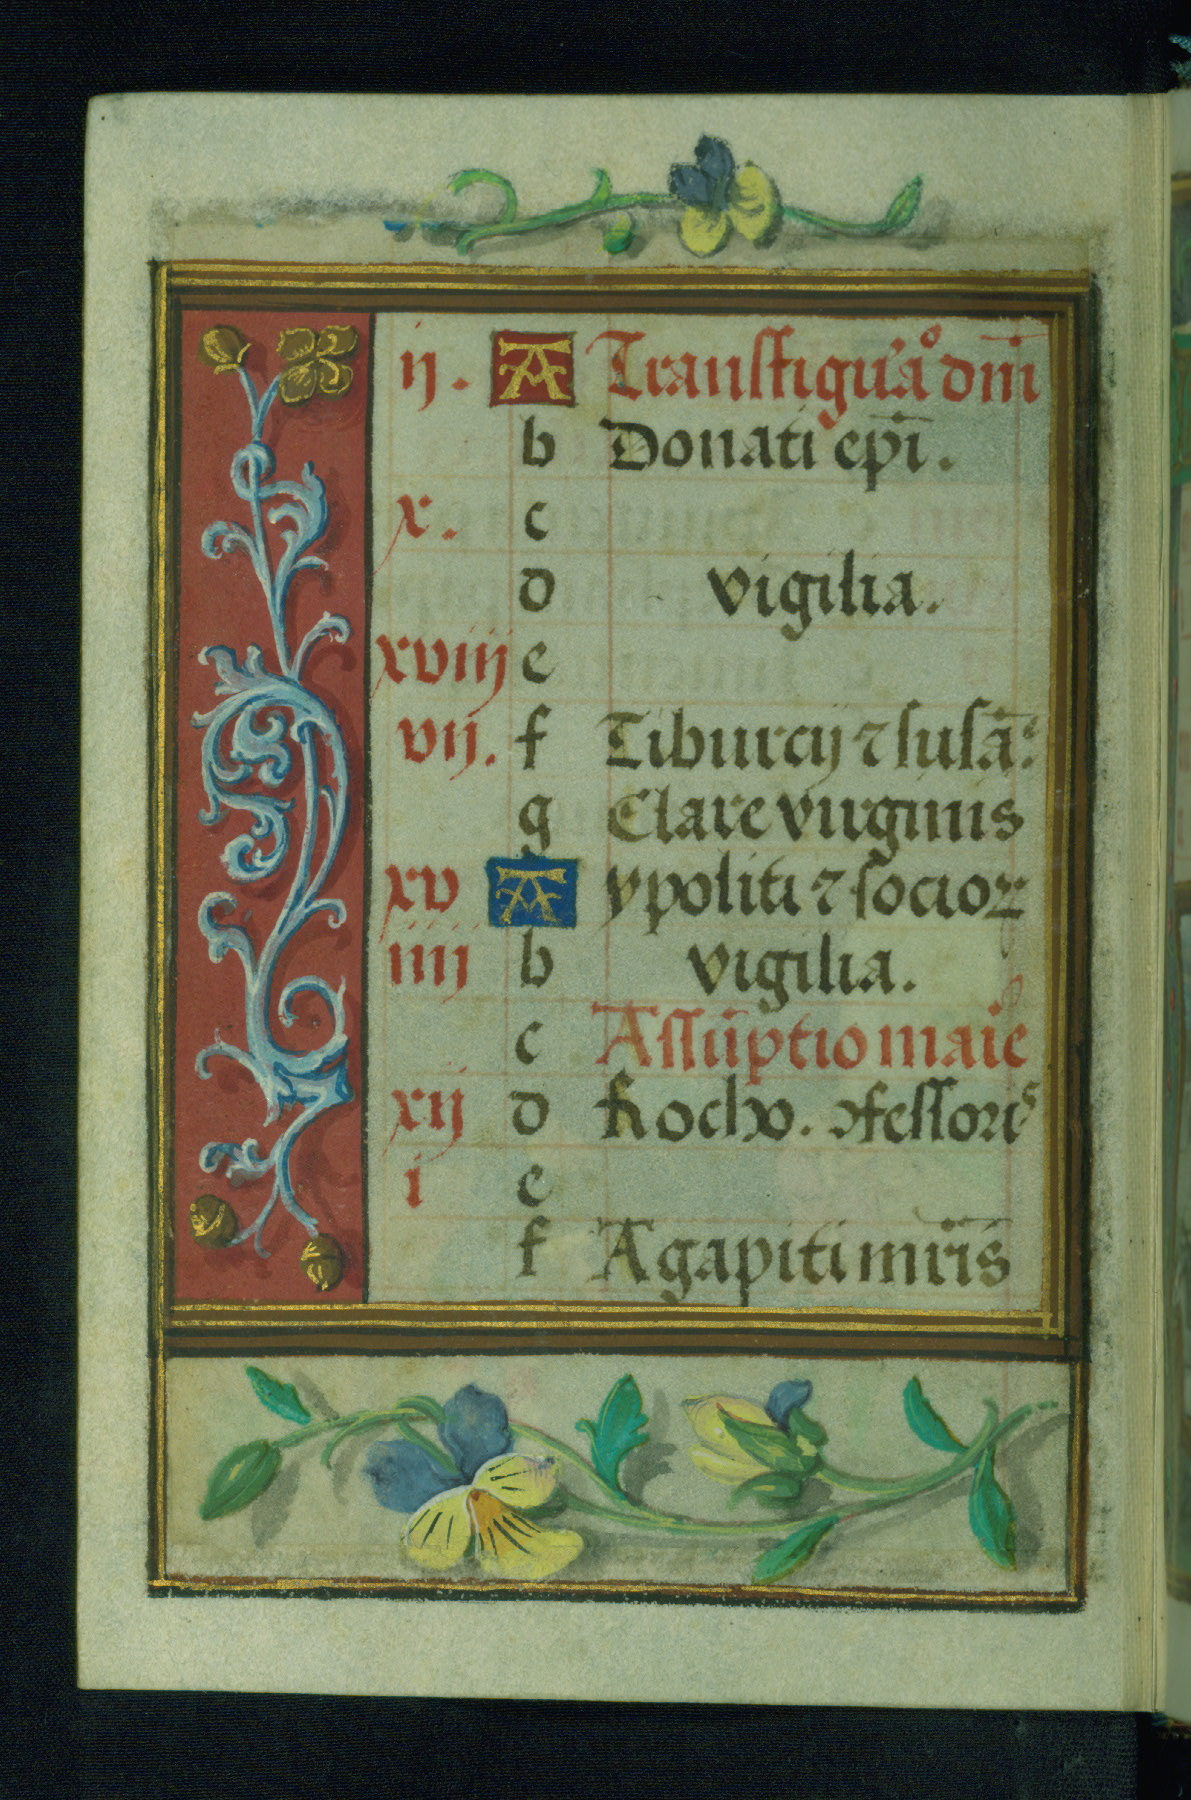 ij. A Transfigur̄aͦ dn̄i
b Donati ep̄i.
x. c
d vigilia.
xviij e
vij. f Tiburcij ⁊ susā:
g Clare virginis
xv A ypoliti ⁊ socioꝝ
iiij b vigilia.
c Assūptio marie
xij d Rochi. ↄfessoris
i e
f Agapiti mr̄is